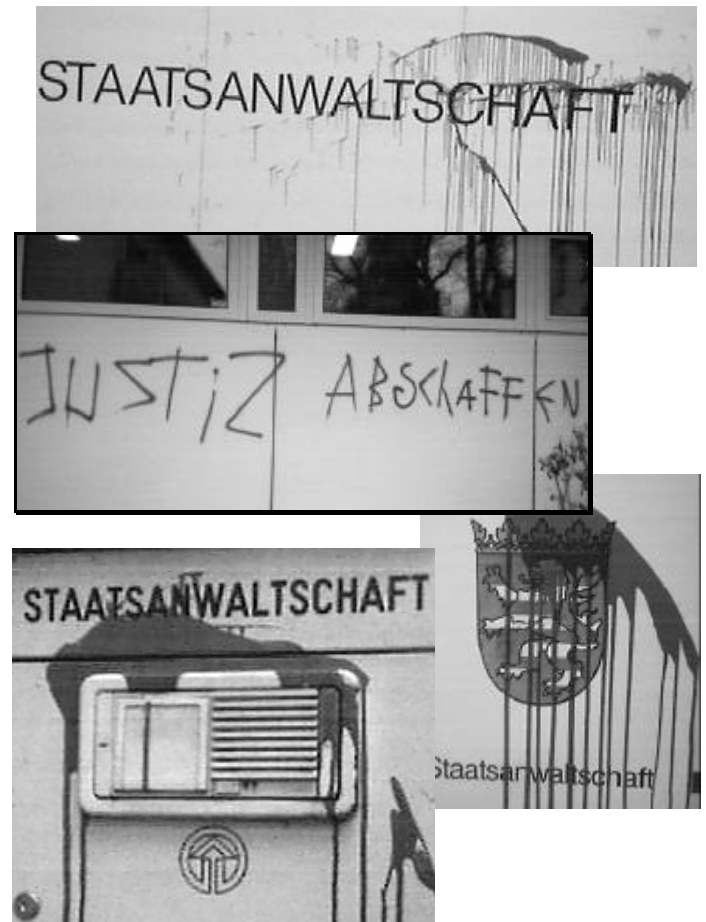 STAATSANWALTSCHAFT
JUSTiZ ABSChAFFEN
STAATSANWALTSCHAFT
Staatsanwaltschaft